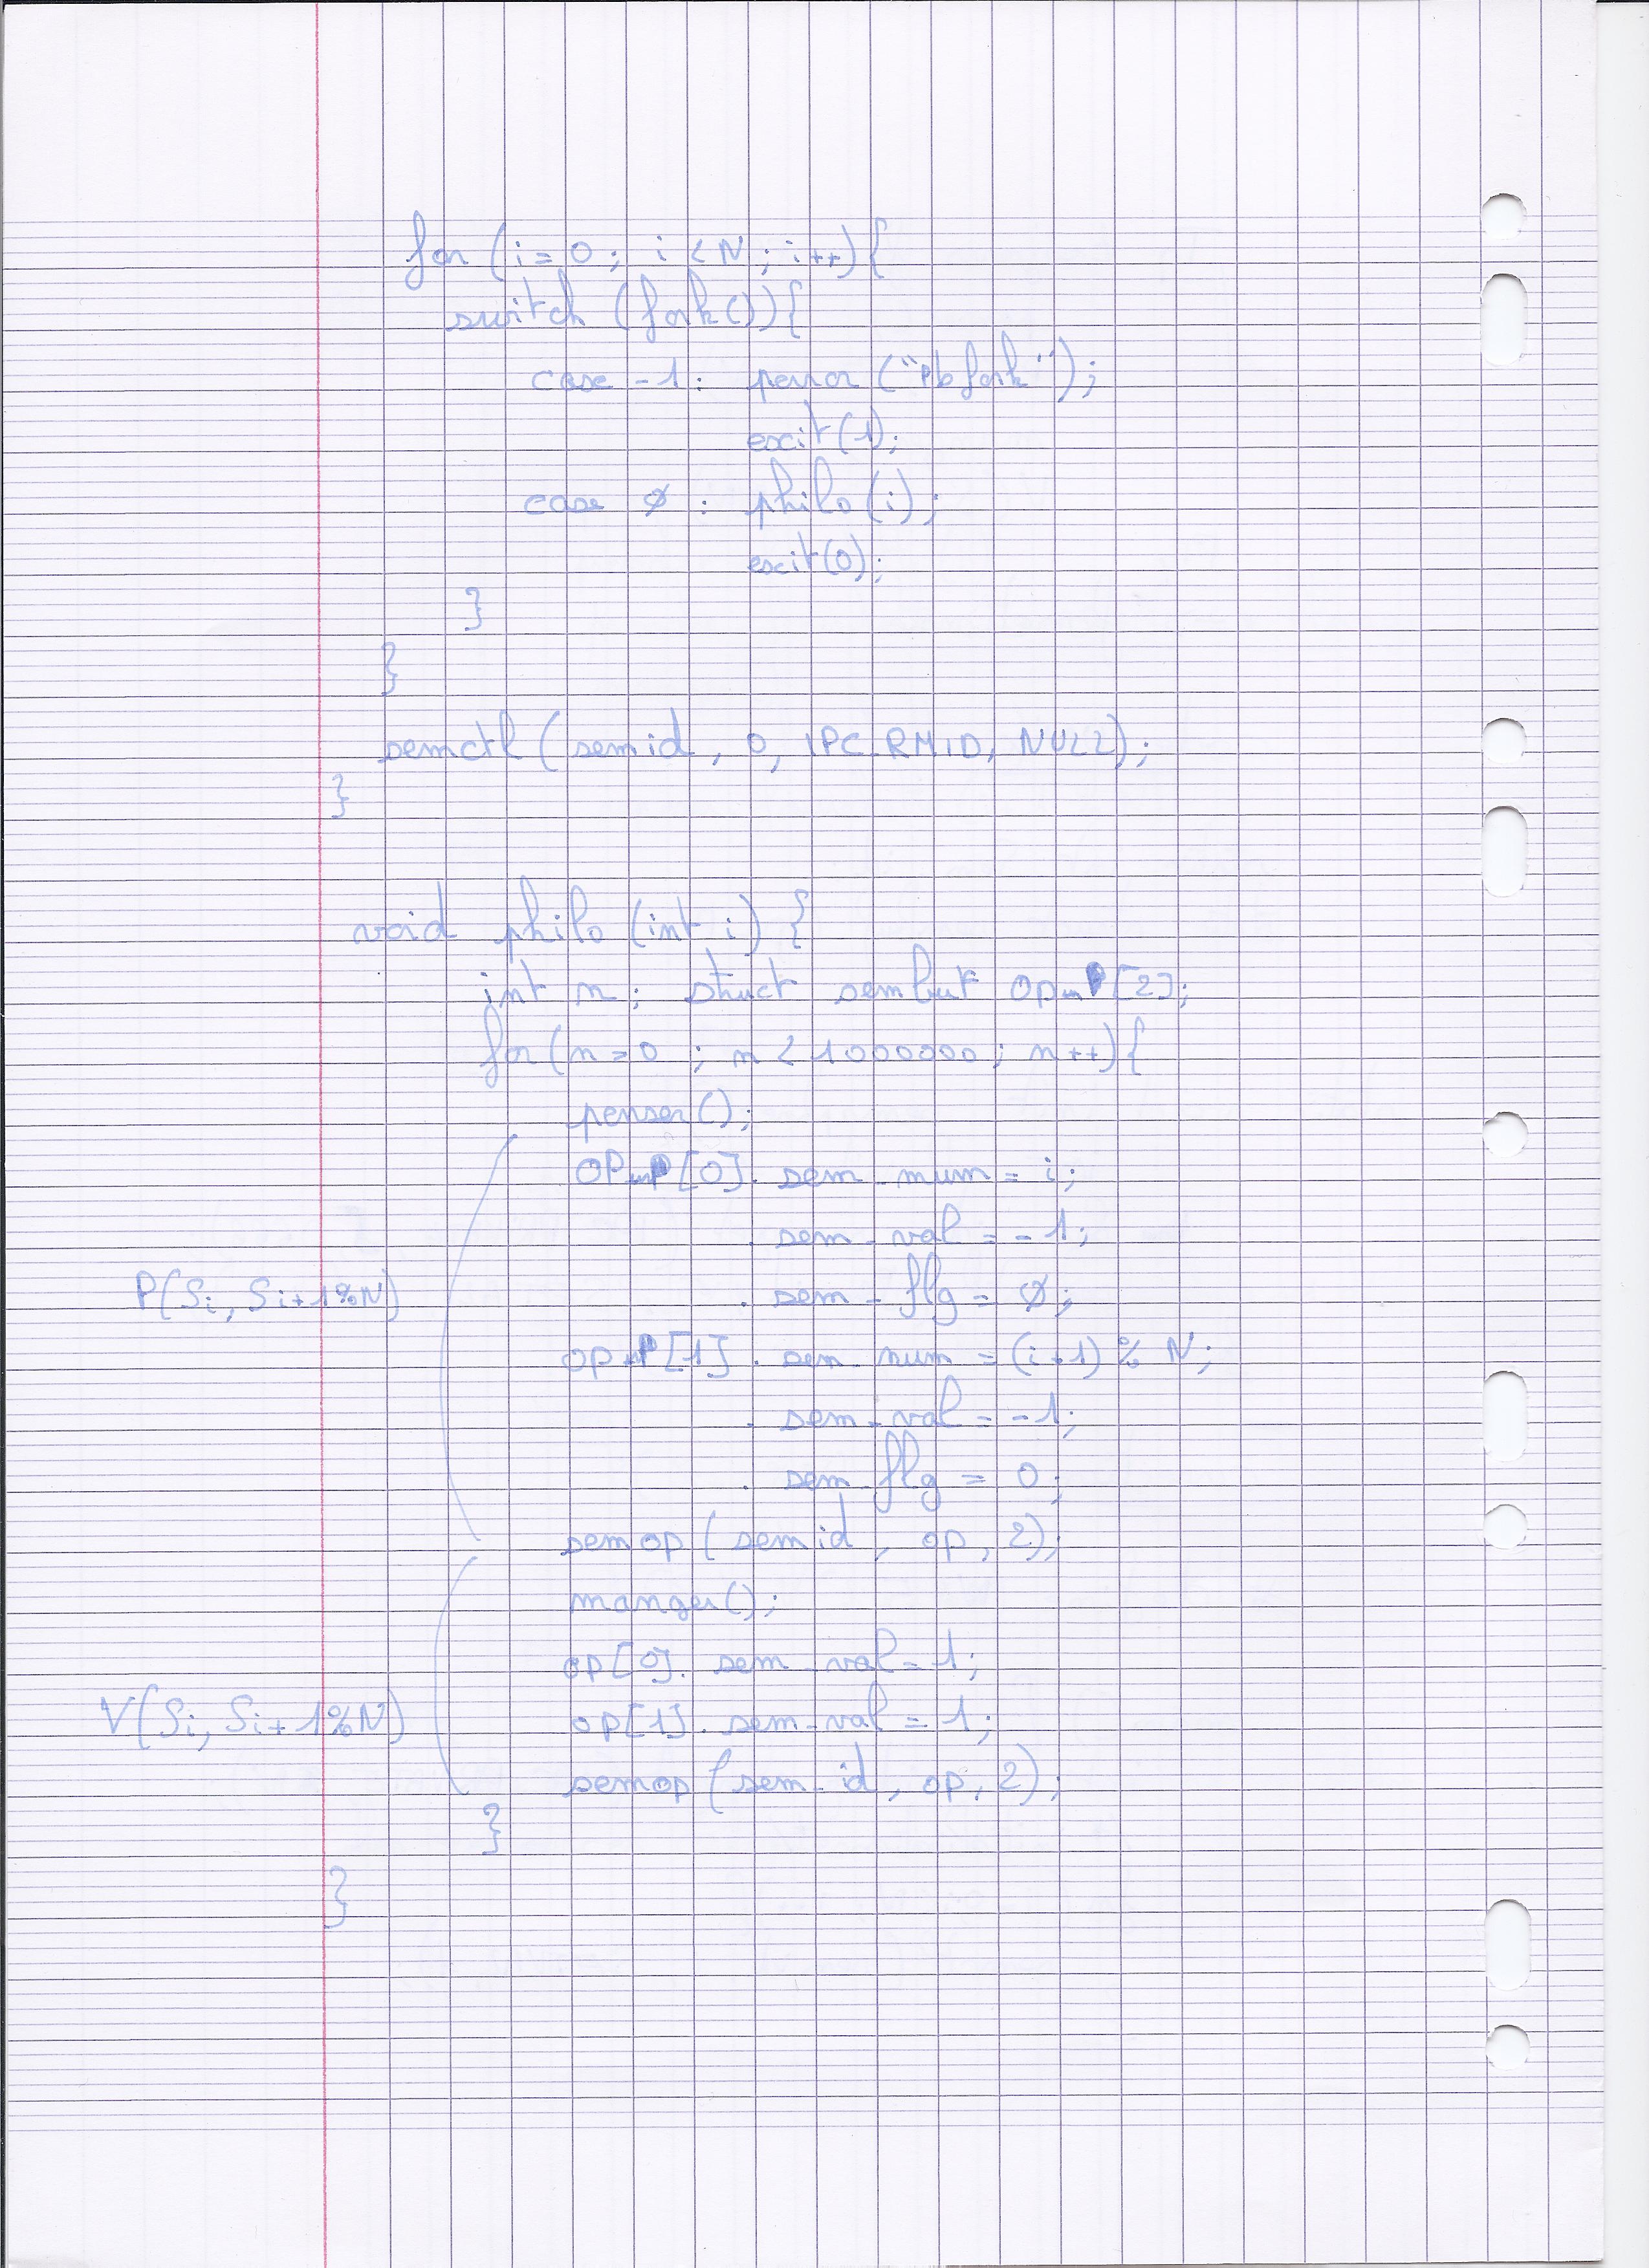 for (i=0; i<N; i++){
switch (fork()){
case -1: perror ("Pb fork");
exit(1);
case 0: philo(i);
exit(0);
}
}
semctl (semid, 0, IPC_RMID, NULL);
}
void philo (int i) {
int n; struct sembuf op_P[2];
for (n=0 ; n<1000000; n++){
penser();
OP_P[0]. sem_num = i;
. sem_val = -1;
. sem_flg = 0;
P(Si, Si+1%N)
op_P[1]. sem_num = (i+1) % N;
. sem_val = -1;
. sem_flg = 0;
semop (semid, op, 2);
manger();
op[0]. sem_val = 1;
V(Si, Si+1%N)
op[1]. sem_val = 1;
semop (sem_id, op, 2);
}
}